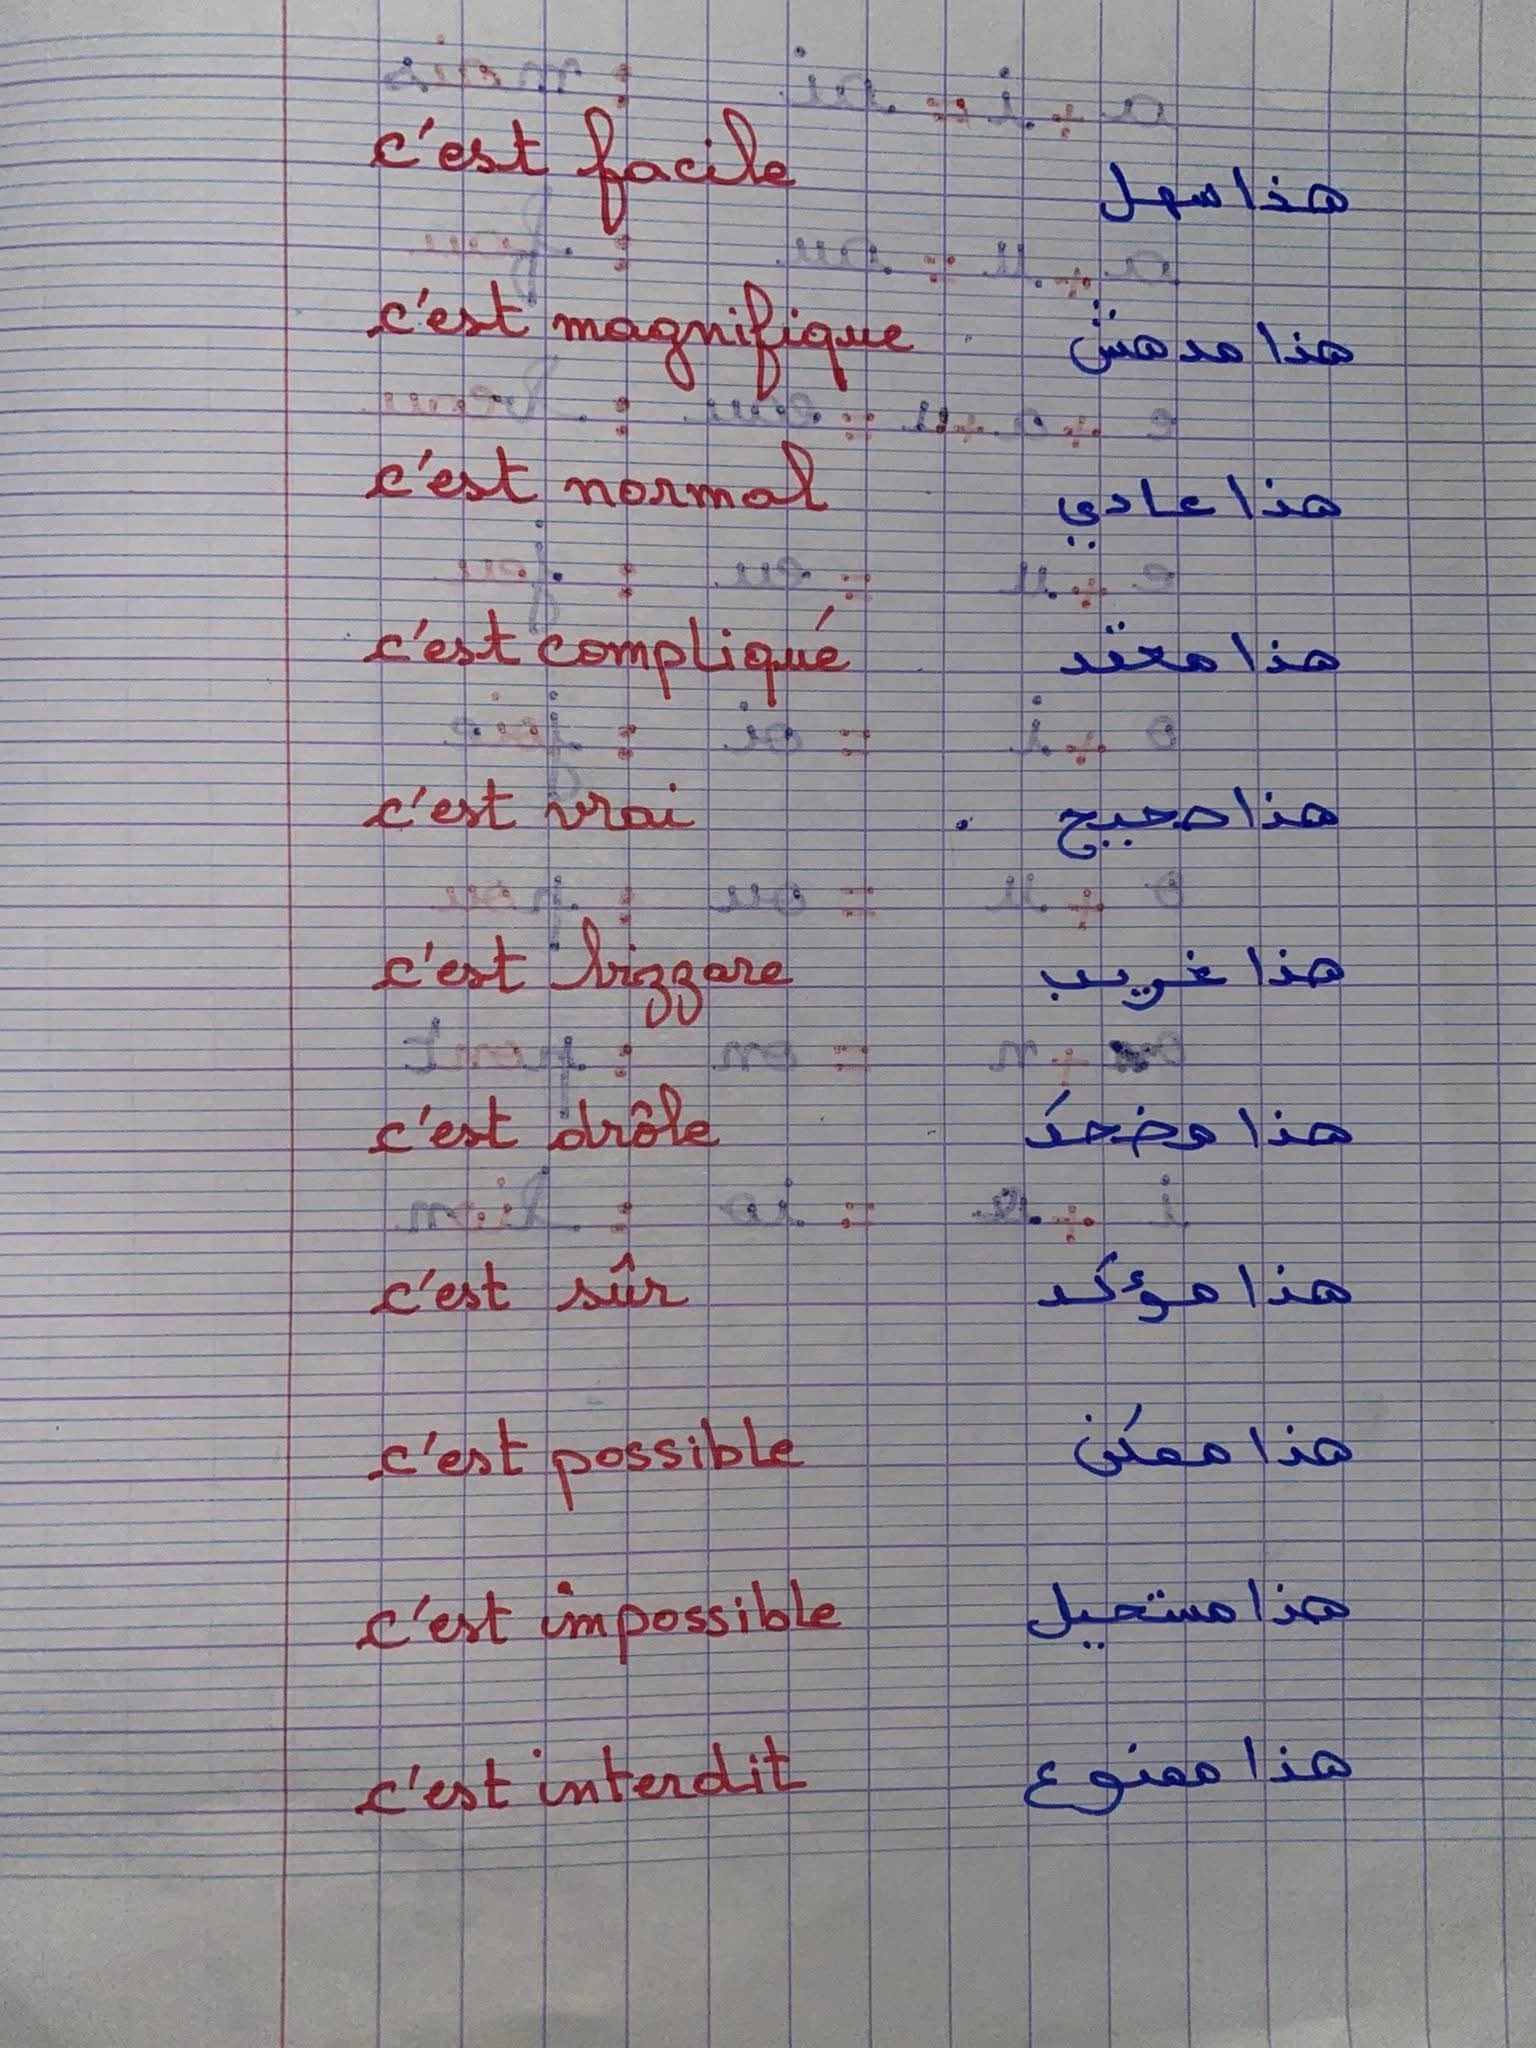 c'est facile هذا سهل
c'est magnifique هذا مدهش
c'est normal هذا عادي
c'est compliqué هذا معقد
c'est vrai هذا صحيح
c'est bizzare هذا غريب
c'est drôle هذا مضحك
c'est sûr هذا مؤكد
c'est possible هذا ممكن
c'est impossible هذا مستحيل
c'est interdit هذا ممنوع